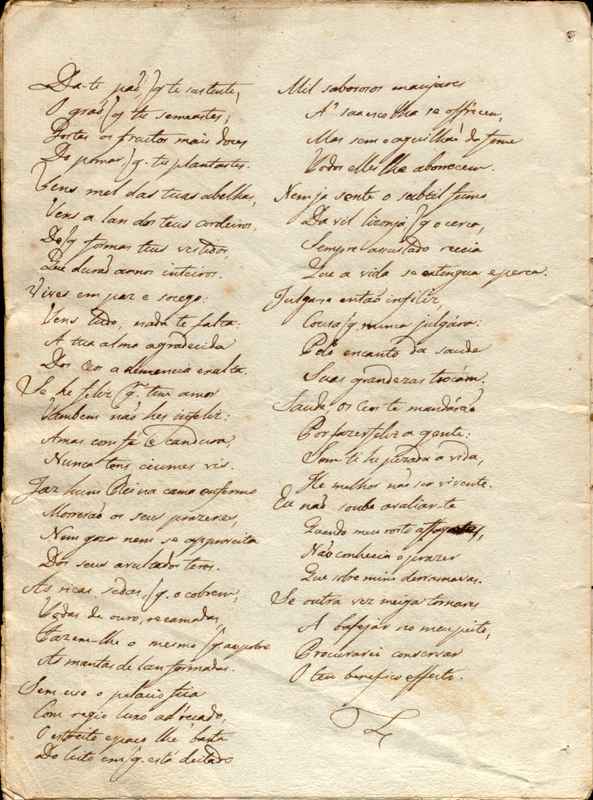 Da-te paõ, q̃ te sustente,
O graõ, q̃ tu semeastes;
Fortes os fructos mais doces
Do pomar, q̃. tu plantastes.
Tens mel das tuas abelhas,
Tens a lan dos teus cordeiros,
De q̃ formas teus vestidos,
Que duraõ annos inteiros.
Vives em paz e socego:
Tens tudo, nada te falta:
A tua alma agradecida
Dos Ceos a clemencia exalta.
Se he feliz q.m tem amor
Tambem naõ hes infeliz:
Amas com fé e candura,
Nunca tens ciumes vis.
Jaz hum Rei na cama enfermo
Morreraõ os seus prazeres,
Nem goza nem se aproveita
Dos seus avultados teres.
As ricas sedas, q̃. o cobrem,
Todas de ouro, recamadas,
Fazem-lhe o mesmo q̃ ao pobre
As mantas de lan formadas.
Sem uso o palacio fica
Com regio luxo adereçado,
O estreito espaço lhe basta
Do leito em q̃. está deitado
Mil saborosos manjares
A' sua escolha se offrecem,
Mas sem o aguilhaõ da fome
Todos elles lhe aborrecem.
Nem ja sente o subtil fumo
Da vil lizonja, q̃ o cerca,
Sempre assustado receia
Que a vida se extingua e perca.
Julgara entaõ infeliz,
Cousa q̃ nunca julgára:
Pelo encanto da saude
Suas grandezas trocára.
Saude, os Ceos te mandáraõ
Por fazer feliz a gente:
Sem ti he pezada a vida,
He melhor naõ ser vivente.
Eu naõ soube avaliar-te
Quando meu rosto affagavas,
Naõ conhecia o prazer
Que sobre mim derramavas.
Se outra vez meiga tornares
A bafejar no meu peito,
Procurarei conservar
O teu benefico effeito.